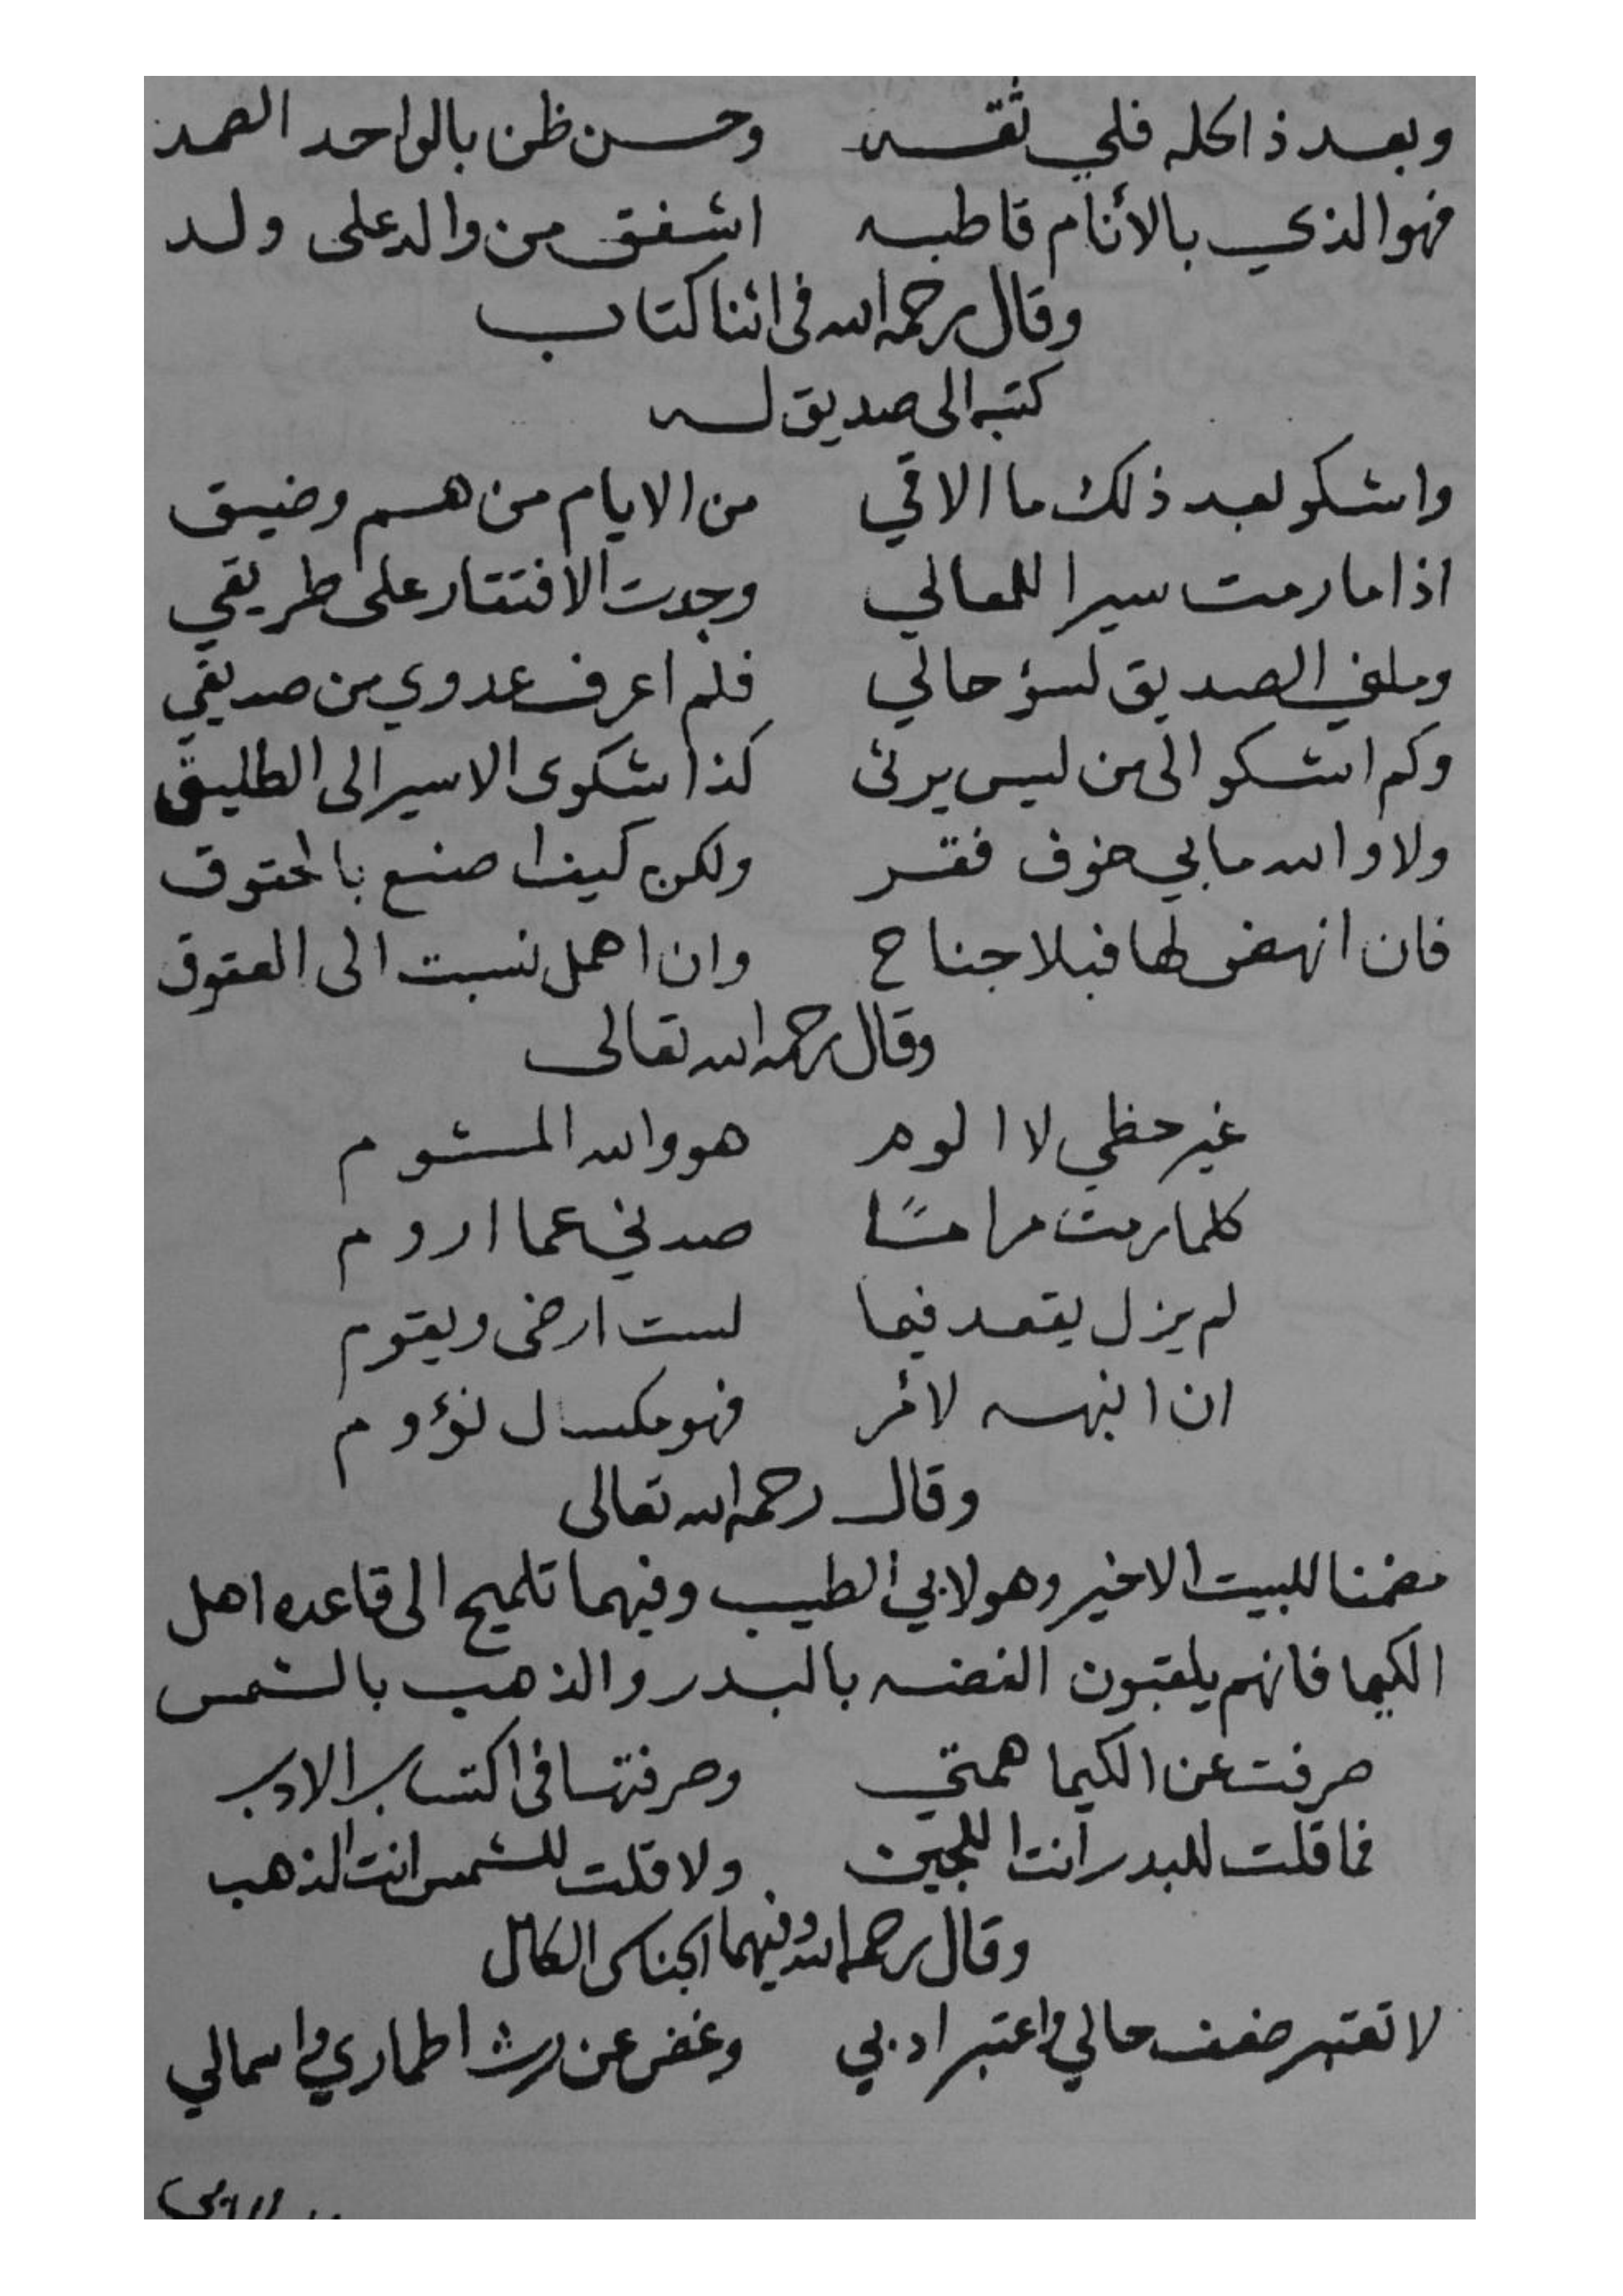 وبعد ذا كله فلي ثقه وحسن ظن بالواحد الصمد
فهو الذي بالأنام قاطبه اشفق من والد على ولد
وقال رحمه الله فى اثنا كتاب
كتبه الى صديق له
واشكو بعد ذلك ما الاقي من الايام من هم وضيق
اذا ما رمت سيرا للمعالي وجدت الافتقار على طريقي
وملني الصديق لسؤ حالي فلم اعرف عدوي من صديقي
وكم اشكو الى من ليس يرثى كذا شكوى الاسير الى الطليق
ولا والله مابي خوف فقر ولكن كيف اصنع بالحقوق
فان انهض لها فبلا جناح وان اهمل نسبت الى العقوق
وقال رحمه الله تعالى
غير حظي لا الوم هو والله المشوم
كلما رمت مرامًا صدني عما اروم
لم يزل يقعد فيما لست ارضى ويقوم
ان انبهه لأمر فهو مكسال نؤوم
وقال رحمه الله تعالى
مضمنا للبيت الاخير وهو لابي الطيب وفيهما تلميح الى قاعده اهل
الكيميا فانهم يلقبون الفضه بالبدر والذهب بالشمس
صرفت عن الكيما همتي وصرفتها فى اكتساب الادب
فما قلت للبدر انت اللجين ولا قلت للشمس انت الذهب
وقال رحمه الله وفيهما الجناس الكامل
لا تعتبر ضعف حالي واعتبر ادبي وغض عن رث اطماري واسمالي